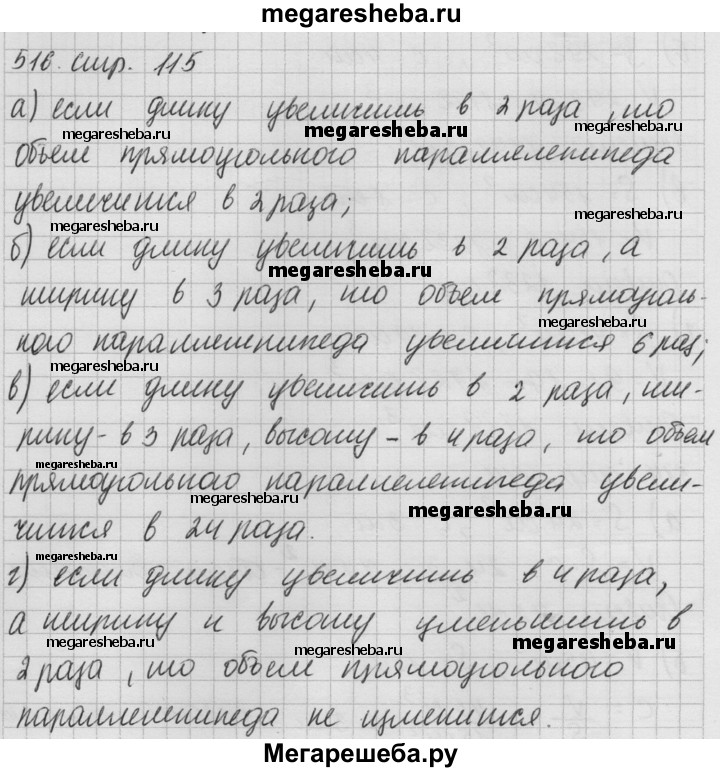 megaresheba.ru
516. стр. 115
а) если длину увеличить в 2 раза, то
megaresheba.ru megaresheba.ru megaresheba.ru
объем прямоугольного параллелепипеда
увеличится в 2 раза;
megaresheba.ru megaresheba.ru
б) если длину увеличить в 2 раза, а
megaresheba.ru
ширину в 3 раза, то объем прямоуголь-
megaresheba.ru
ного параллелепипеда увеличится 6 раз;
megaresheba.ru
в) если длину увеличить в 2 раза, ши-
megaresheba.ru
рину - в 3 раза, высоту - в 4 раза, то объем
megaresheba.ru
прямоугольного параллелепипеда увели-
megaresheba.ru megaresheba.ru
чится в 24 раза.
megaresheba.ru
г) если длину увеличить в 4 раза,
а ширину и высоту уменьшить в
megaresheba.ru megaresheba.ru megaresheba.ru
2 раза, то объем прямоугольного
параллелепипеда не изменится.
Мегарешеба.ру